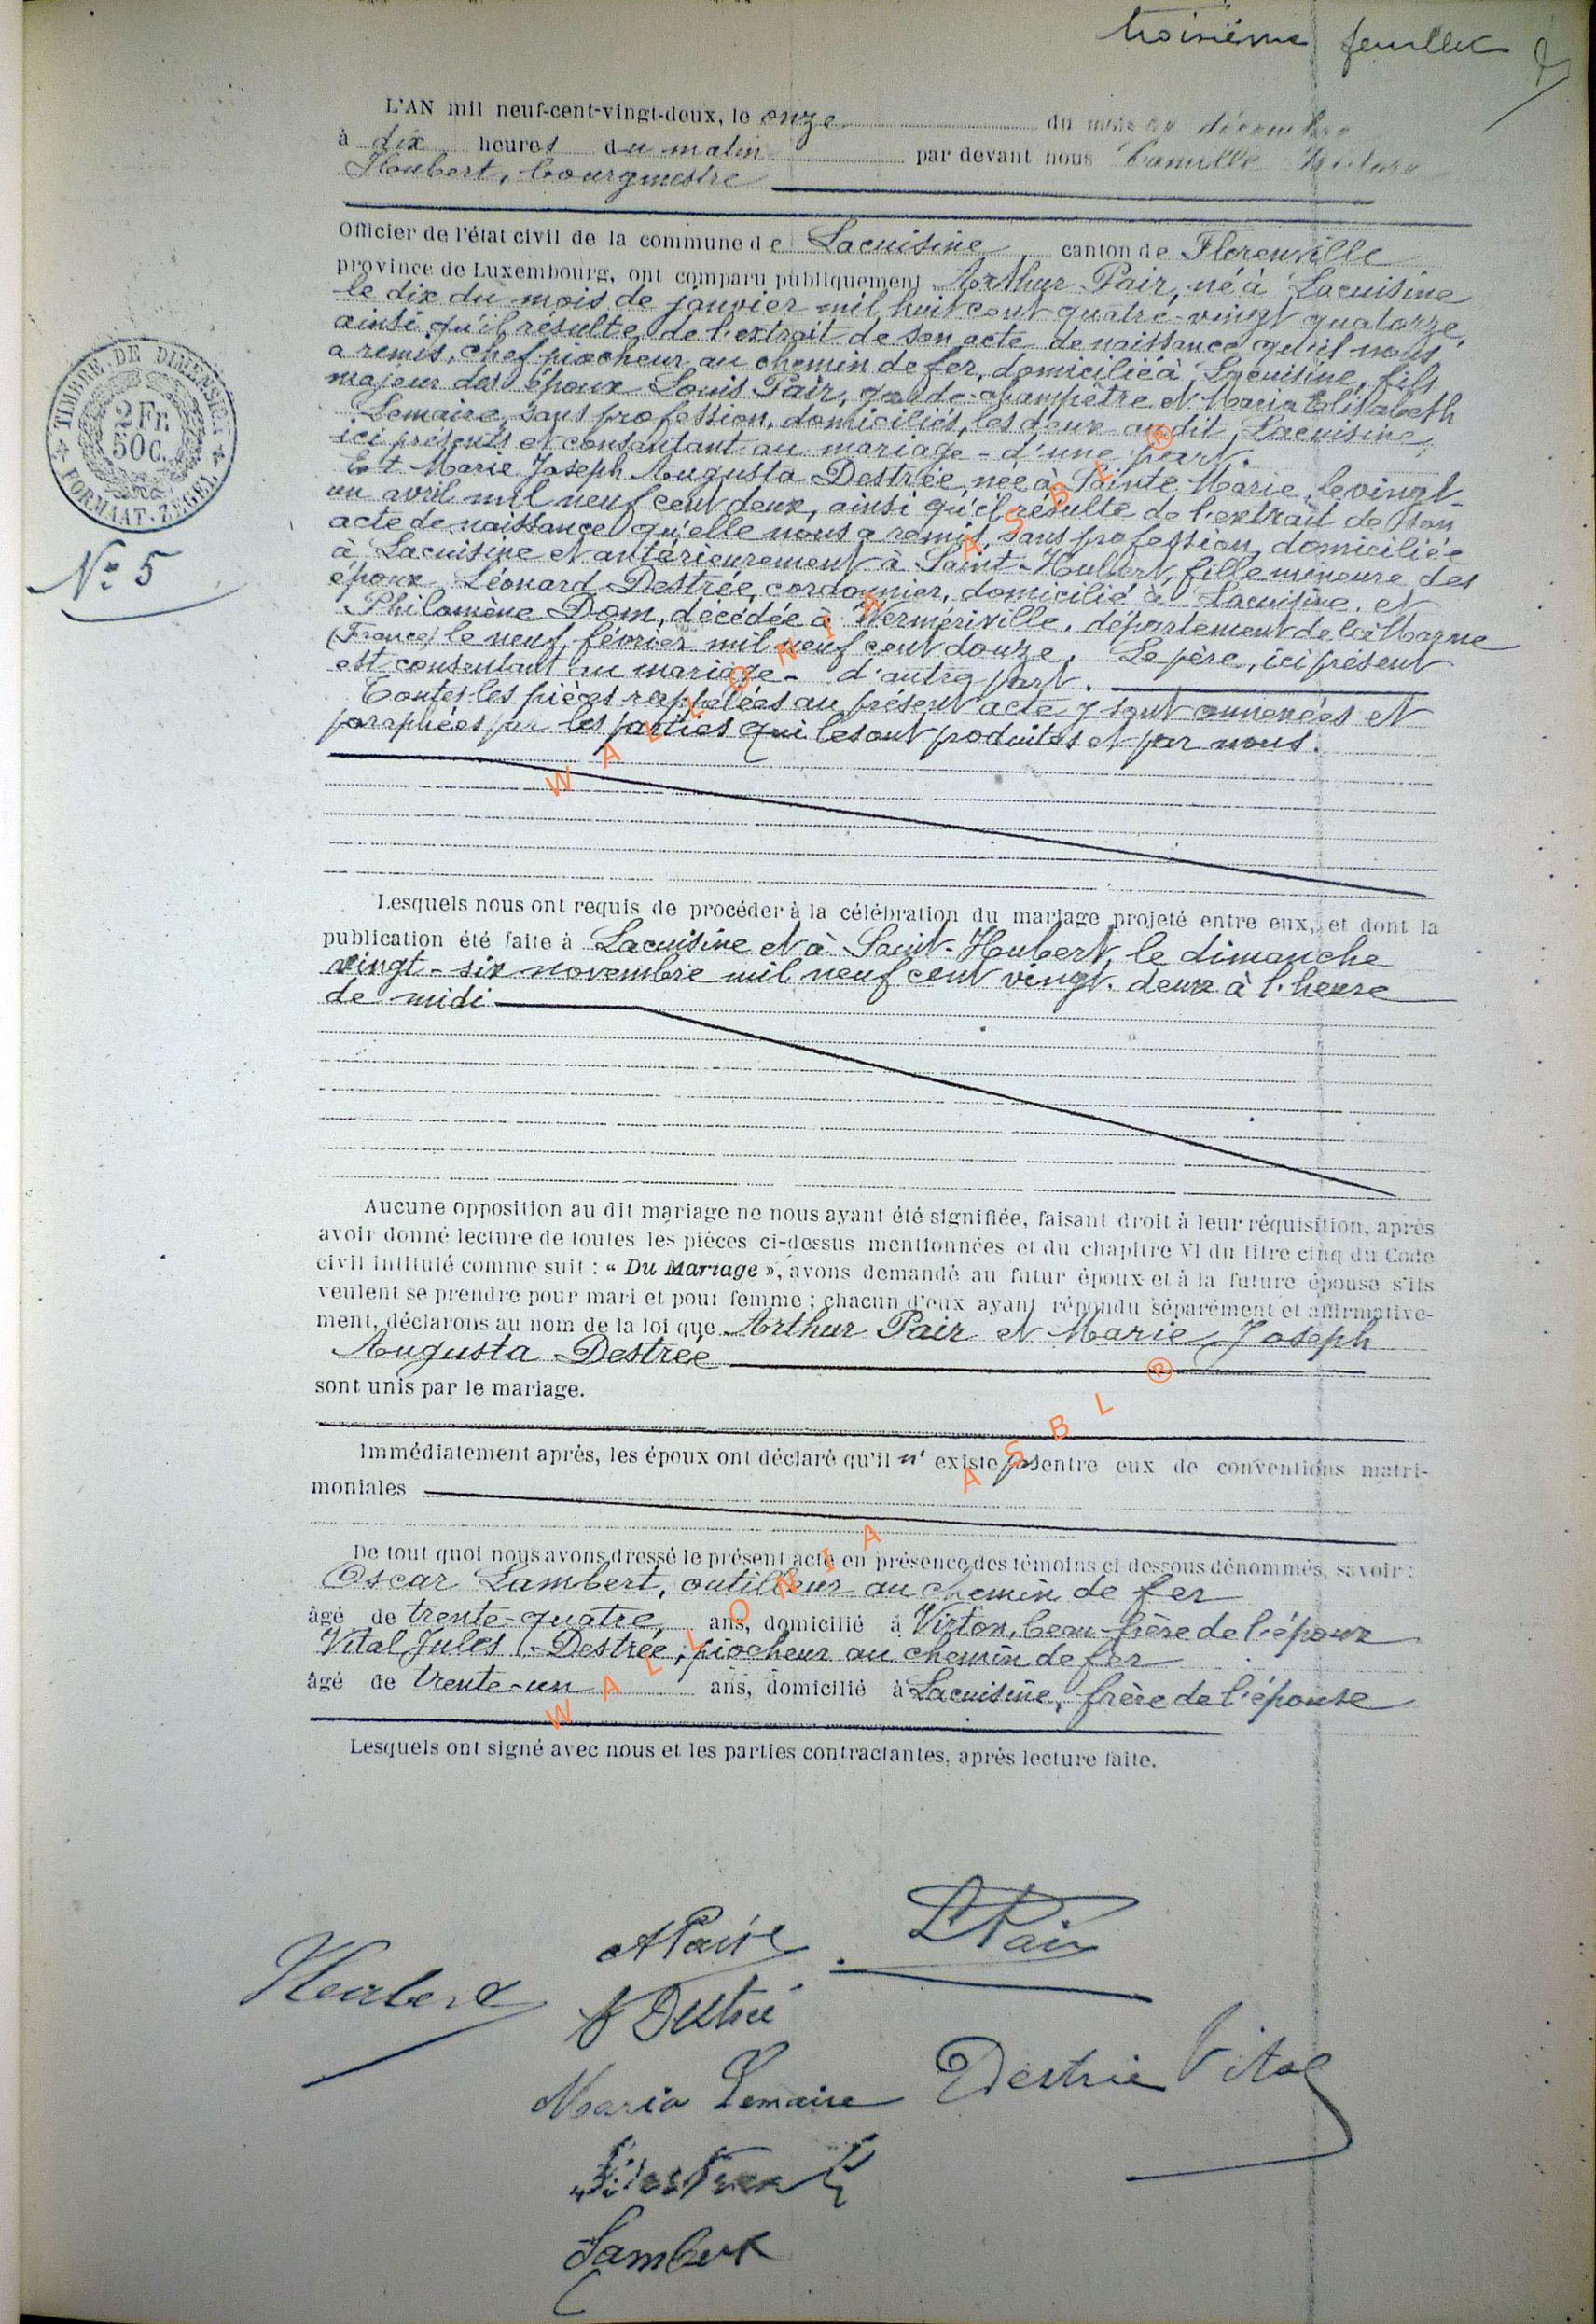 troisième feuillet
L'AN mil neuf-cent-vingt-deux, le onze du mois de décembre
à dix heures du matin par devant nous Camille
Houbert, bourgmestre
Officier de l'état civil de la commune de Lacuisine canton de Florenville
province de Luxembourg, ont comparu publiquement Arthur Pair, né à Lacuisine
le dix du mois de janvier mil huit cent quatre-vingt quatorze,
ainsi qu'il résulte de l'extrait de son acte de naissance qu'il nous
a remis, chef piocheur au chemin de fer, domicilié à Lacuisine, fils
majeur des époux Louis Pair, garde-champêtre et Maria Elisabeth
Lemaire, sans profession, domiciliés, les deux audit Lacuisine,
ici présents et consentant au mariage - d'une part.
Et Marie Joseph Augusta Destrée, née à Sainte Marie, le vingt-
un avril mil neuf cent deux, ainsi qu'il résulte de l'extrait de son
acte de naissance qu'elle nous a remis, sans profession, domiciliée
à Lacuisine et antérieurement à Saint-Hubert, fille mineure des
époux Léonard Destrée, cordonnier, domicilié à Lacuisine, et
Philomène Dom, décédée à Wermériville, département de la Marne
(France) le neuf février mil neuf cent douze. Le père, ici présent
est consentant au mariage - d'autre part.
Toutes les pièces rappelées au présent acte y sont annexées et
paraphées par les parties qui les ont produites et par nous.
TIMBRE DE DIMENSION
2 Fr.
50 C.
FORMAAT-ZEGEL
N° 5
Lesquels nous ont requis de procéder à la célébration du mariage projeté entre eux, et dont la
publication été faite à Lacuisine et à Saint-Hubert, le dimanche
vingt-six novembre mil neuf cent vingt-deux à l'heure
de midi
Aucune opposition au dit mariage ne nous ayant été signifiée, faisant droit à leur réquisition, après
avoir donné lecture de toutes les pièces ci-dessus mentionnées et du chapitre VI du titre cinq du Code
civil intitulé comme suit : « Du Mariage », avons demandé au futur époux et à la future épouse s'ils
veulent se prendre pour mari et pour femme ; chacun d'eux ayant répondu séparément et affirmative-
ment, déclarons au nom de la loi que Arthur Pair et Marie Joseph
Augusta Destrée
sont unis par le mariage.
Immédiatement après, les époux ont déclaré qu'il n' existe pas entre eux de conventions matri-
moniales
De tout quoi nous avons dressé le présent acte en présence des témoins ci-dessous dénommés, savoir :
Oscar Lambert, outilleur au chemin de fer
âgé de trente-quatre ans, domicilié à Virton, beau-frère de l'époux
Vital Jules Destrée, piocheur au chemin de fer
âgé de trente-un ans, domicilié à Lacuisine, frère de l'épouse
Lesquels ont signé avec nous et les parties contractantes, après lecture faite.
A Pair
L Pair
Houbert
A Destrée
Maria Lemaire
Destrée Vital
Destrée L
Lambert
WALLONIA ASBL ®
WALLONIA ASBL ®